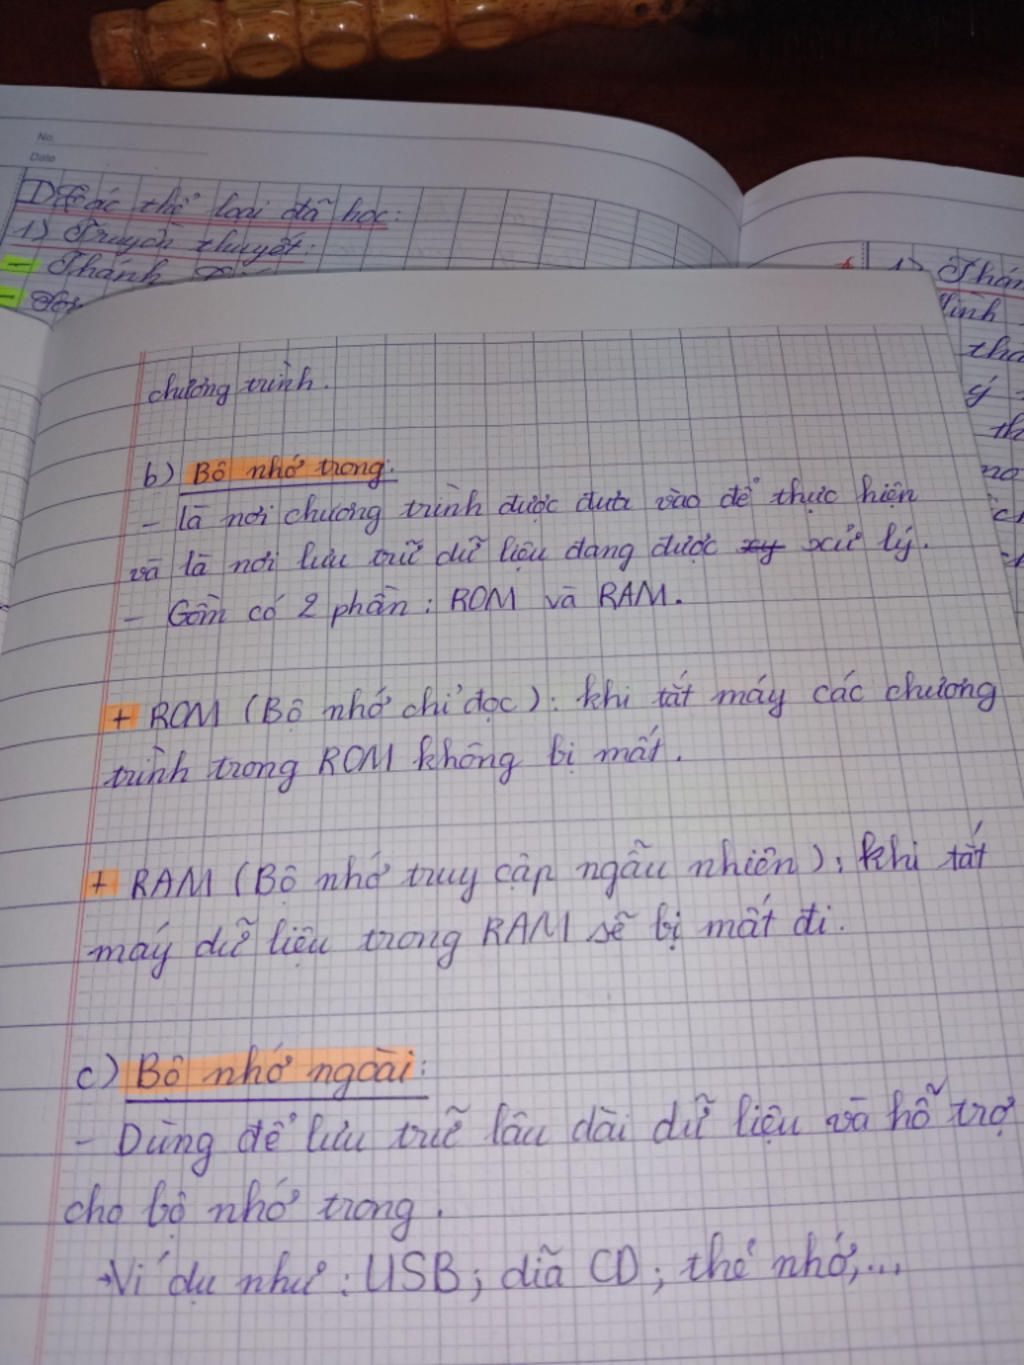 No.
Date
I) Các thể loại đã học:
1) Truyền thuyết:
- Thánh
1) Thán
chương trình.
b) Bộ nhớ trong:
- là nơi chương trình được đưa vào để thực hiện
và là nơi lưu trữ dữ liệu đang được xy xử lý.
- Gồm có 2 phần: ROM và RAM.
+ ROM (Bộ nhớ chỉ đọc): khi tắt máy các chương
trình trong ROM không bị mất.
+ RAM (Bộ nhớ truy cập ngẫu nhiên): khi tắt
máy dữ liệu trong RAM sẽ bị mất đi.
c) Bộ nhớ ngoài:
- Dùng để lưu trữ lâu dài dữ liệu và hỗ trợ
cho bộ nhớ trong.
→ Ví dụ như: USB; đĩa CD; thẻ nhớ,...